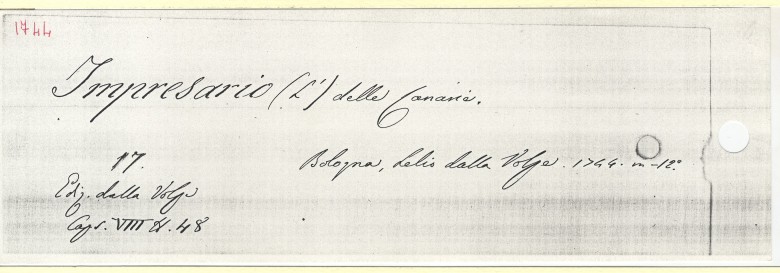 1744
Impresario (L') delle Canarie.
17.
Bologna, Lelio dalla Volpe. 1744. in-12°.
Ediz. dalla Volpe
Caps. VIII N. 48